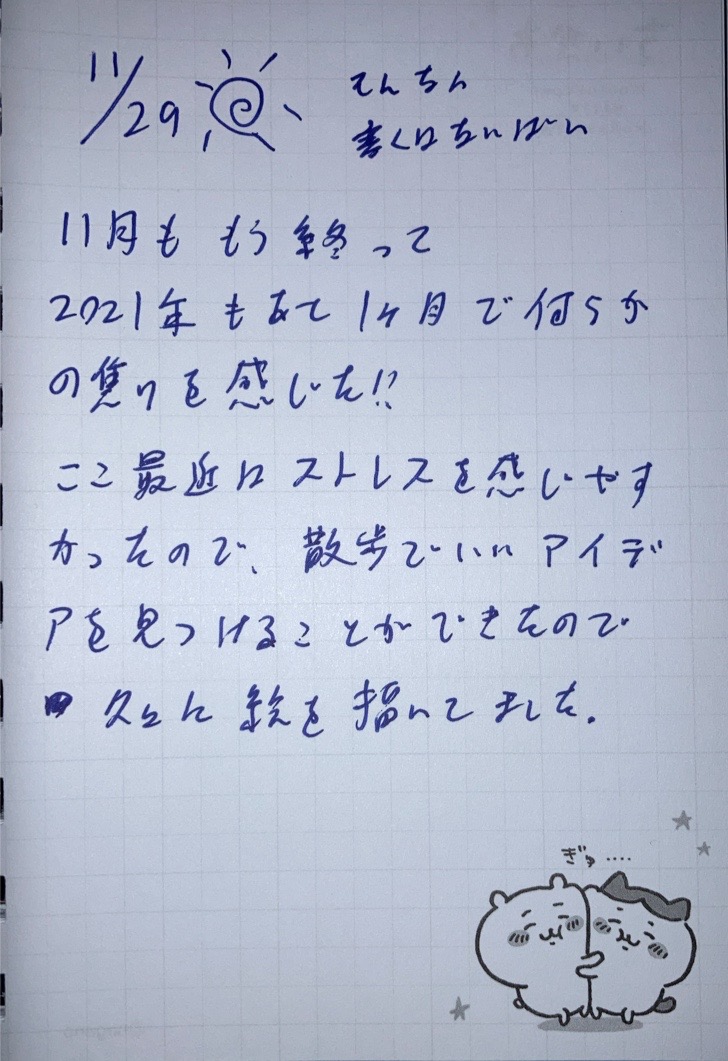 11/29
てんちん
書くはちいばい
11月も もう終って
2021年もあて1ヶ月で何らか
の焦りを感じた!?
ここ最近はストレスを感じやす
かったので、散歩でいいアイデ
アを見つけることができたので
久々に絵を描いてました。
ぎゅ....